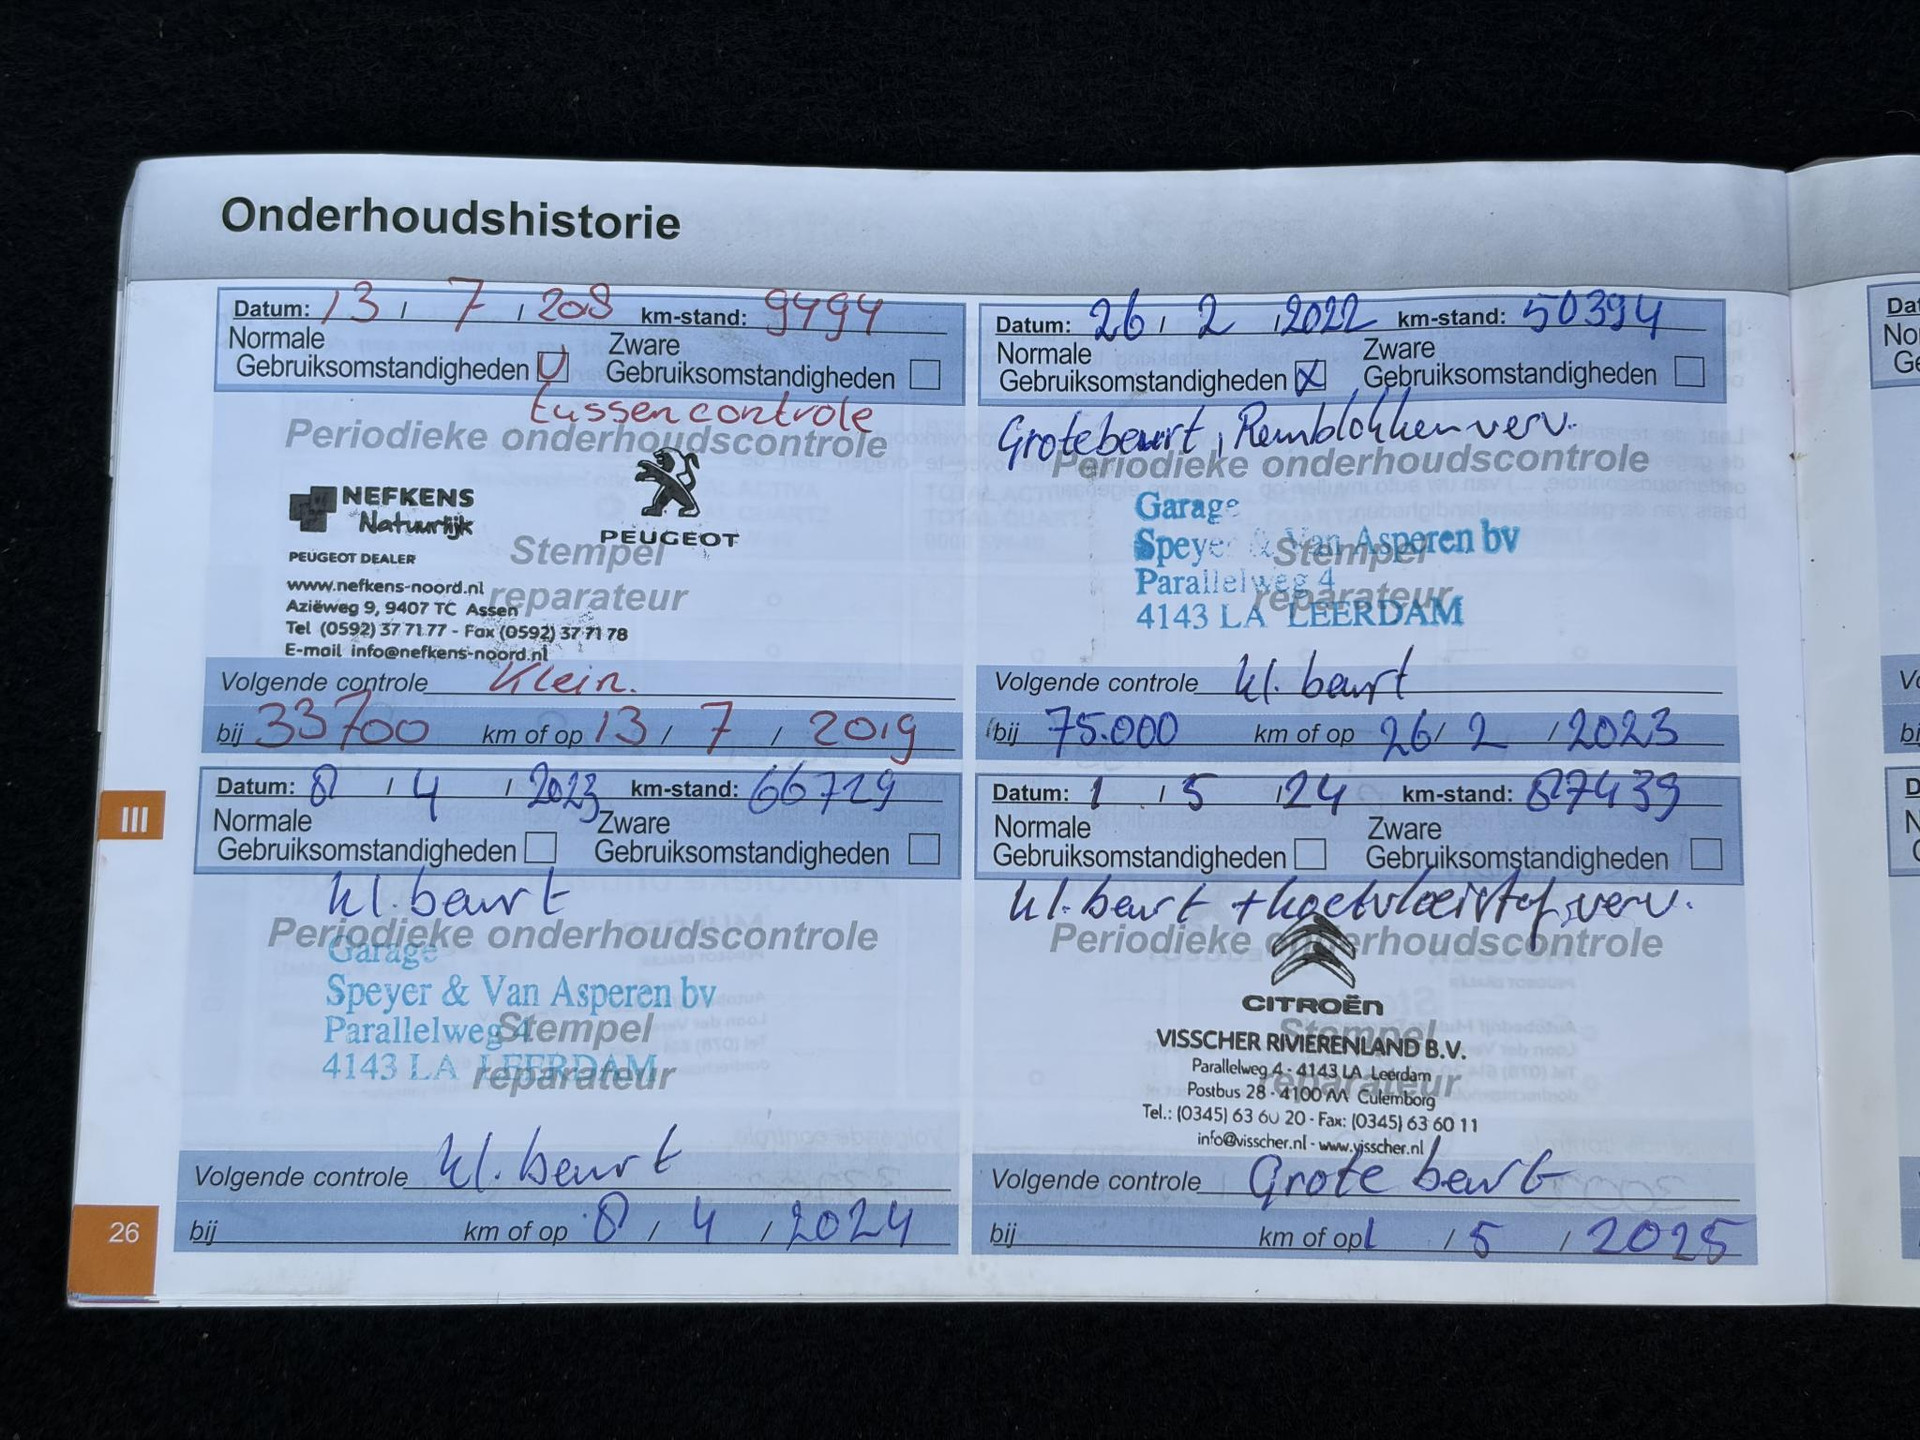 Onderhoudshistorie
Datum: 13 / 7 / 2018 km-stand: 9494
Normale
Gebruiksomstandigheden
Zware
Gebruiksomstandigheden
tussencontrole
Periodieke onderhoudscontrole
NEFKENS
Natuurlijk
PEUGEOT
PEUGEOT DEALER
Stempel
reparateur
www.nefkens-noord.nl
Aziëweg 9, 9407 TC Assen
Tel (0592) 37 71 77 - Fax (0592) 37 71 78
E-mail info@nefkens-noord.nl
Volgende controle Klein.
bij 33700 km of op 13 / 7 / 2019
Datum: 26 / 2 / 2022 km-stand: 50394
Normale
Gebruiksomstandigheden X
Zware
Gebruiksomstandigheden
Grotebeurt, Remblokken verv.
Periodieke onderhoudscontrole
Garage
Speyer & Van Asperen bv
Parallelweg 4
4143 LA LEERDAM
Stempel
reparateur
Volgende controle kl. beurt
bij 75.000 km of op 26 / 2 / 2023
Datum: 8 / 4 / 2023 km-stand: 66729
Normale
Gebruiksomstandigheden
Zware
Gebruiksomstandigheden
kl. beurt
Periodieke onderhoudscontrole
Garage
Speyer & Van Asperen bv
Parallelweg 4
4143 LA LEERDAM
Stempel
reparateur
Volgende controle kl. beurt
bij km of op 8 / 4 / 2024
Datum: 1 / 5 / 24 km-stand: 87439
Normale
Gebruiksomstandigheden
Zware
Gebruiksomstandigheden
kl. beurt + koelvloeistof verv.
Periodieke onderhoudscontrole
CITROËN
Stempel
reparateur
VISSCHER RIVIERENLAND B.V.
Parallelweg 4 - 4143 LA Leerdam
Postbus 28 - 4100 AA Culemborg
Tel.: (0345) 63 60 20 - Fax: (0345) 63 60 11
info@visscher.nl - www.visscher.nl
Volgende controle Grote beurt
bij km of op 1 / 5 / 2025
III
26